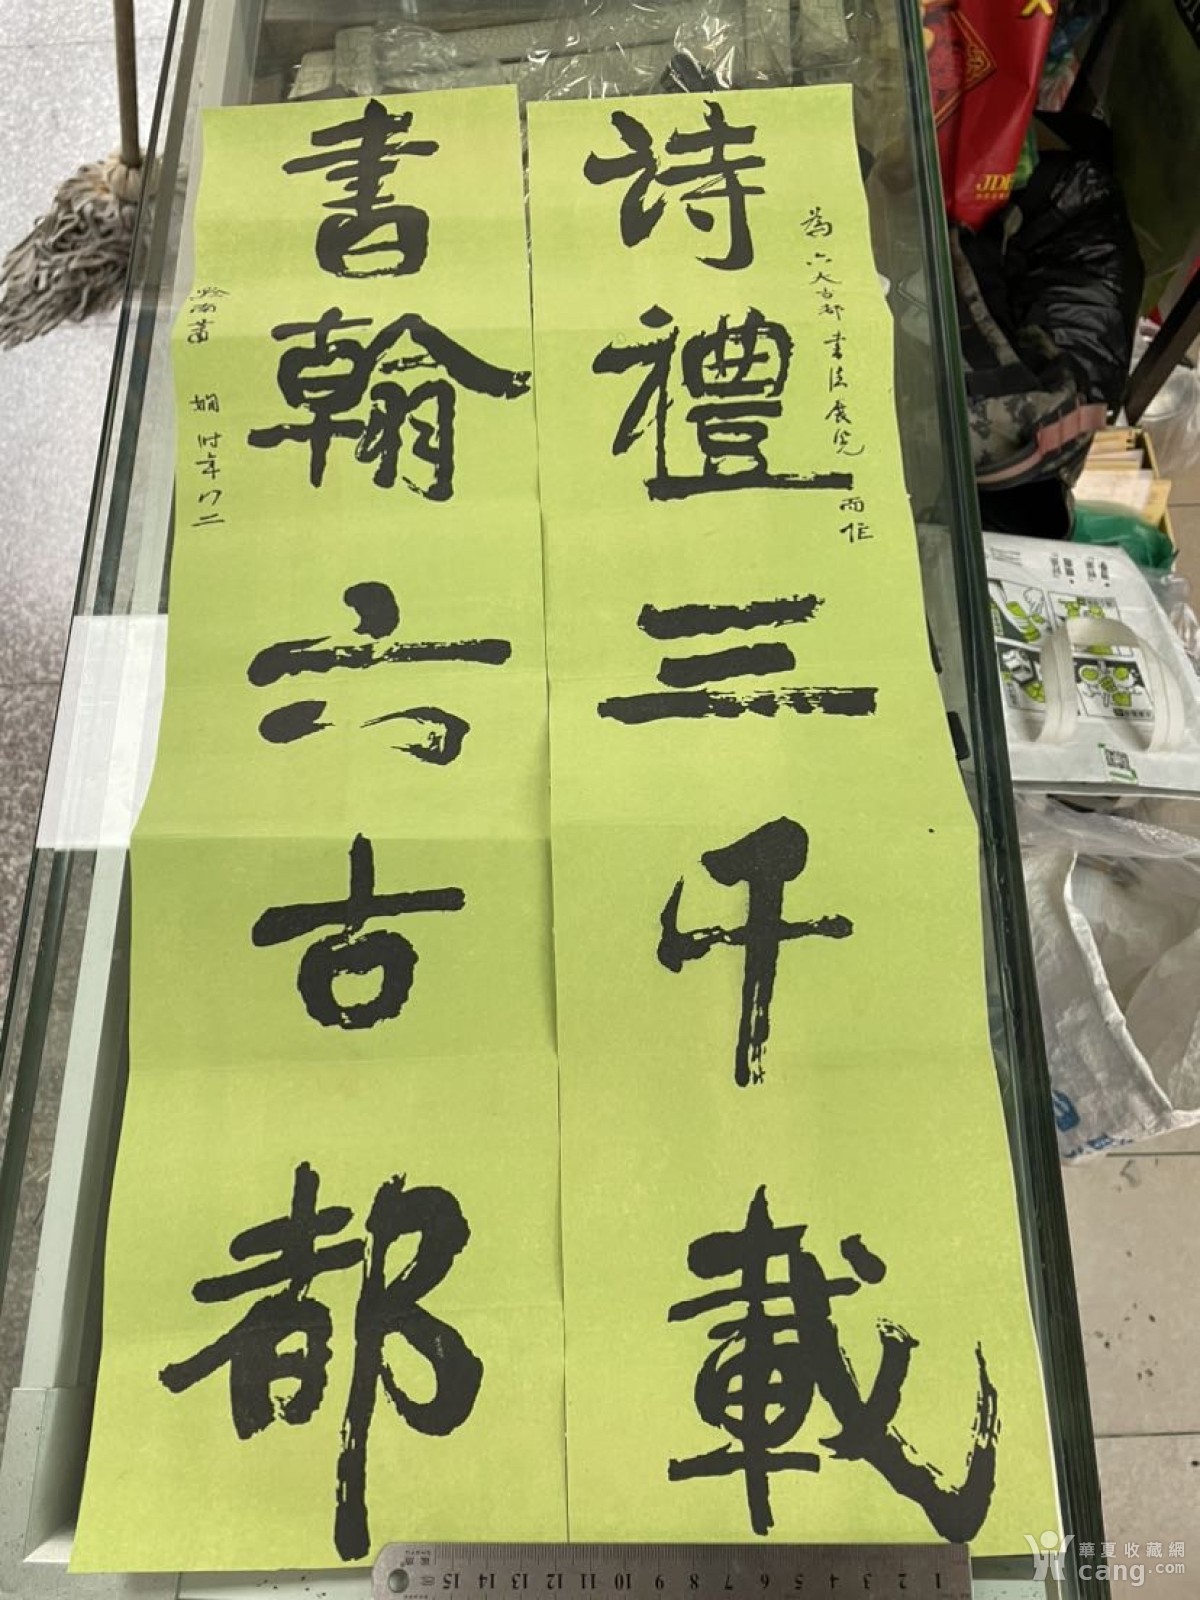 詩禮三千載
為六大古都書法展覽而作
書翰六古都
黔南蕭娴时年八二
JDB
15 14 13 12 11 10 9 8 7 6 5 4 3 2 1
華夏收藏網
cang.com